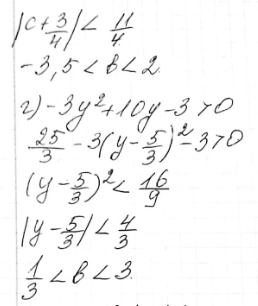 |c+3/4|<11/4
-3,5<в<2.
г) -3y²+10y-3>0
25/3-3(y-5/3)²-3>0
(y-5/3)²<16/9
|y-5/3|<4/3
1/3<в<3.